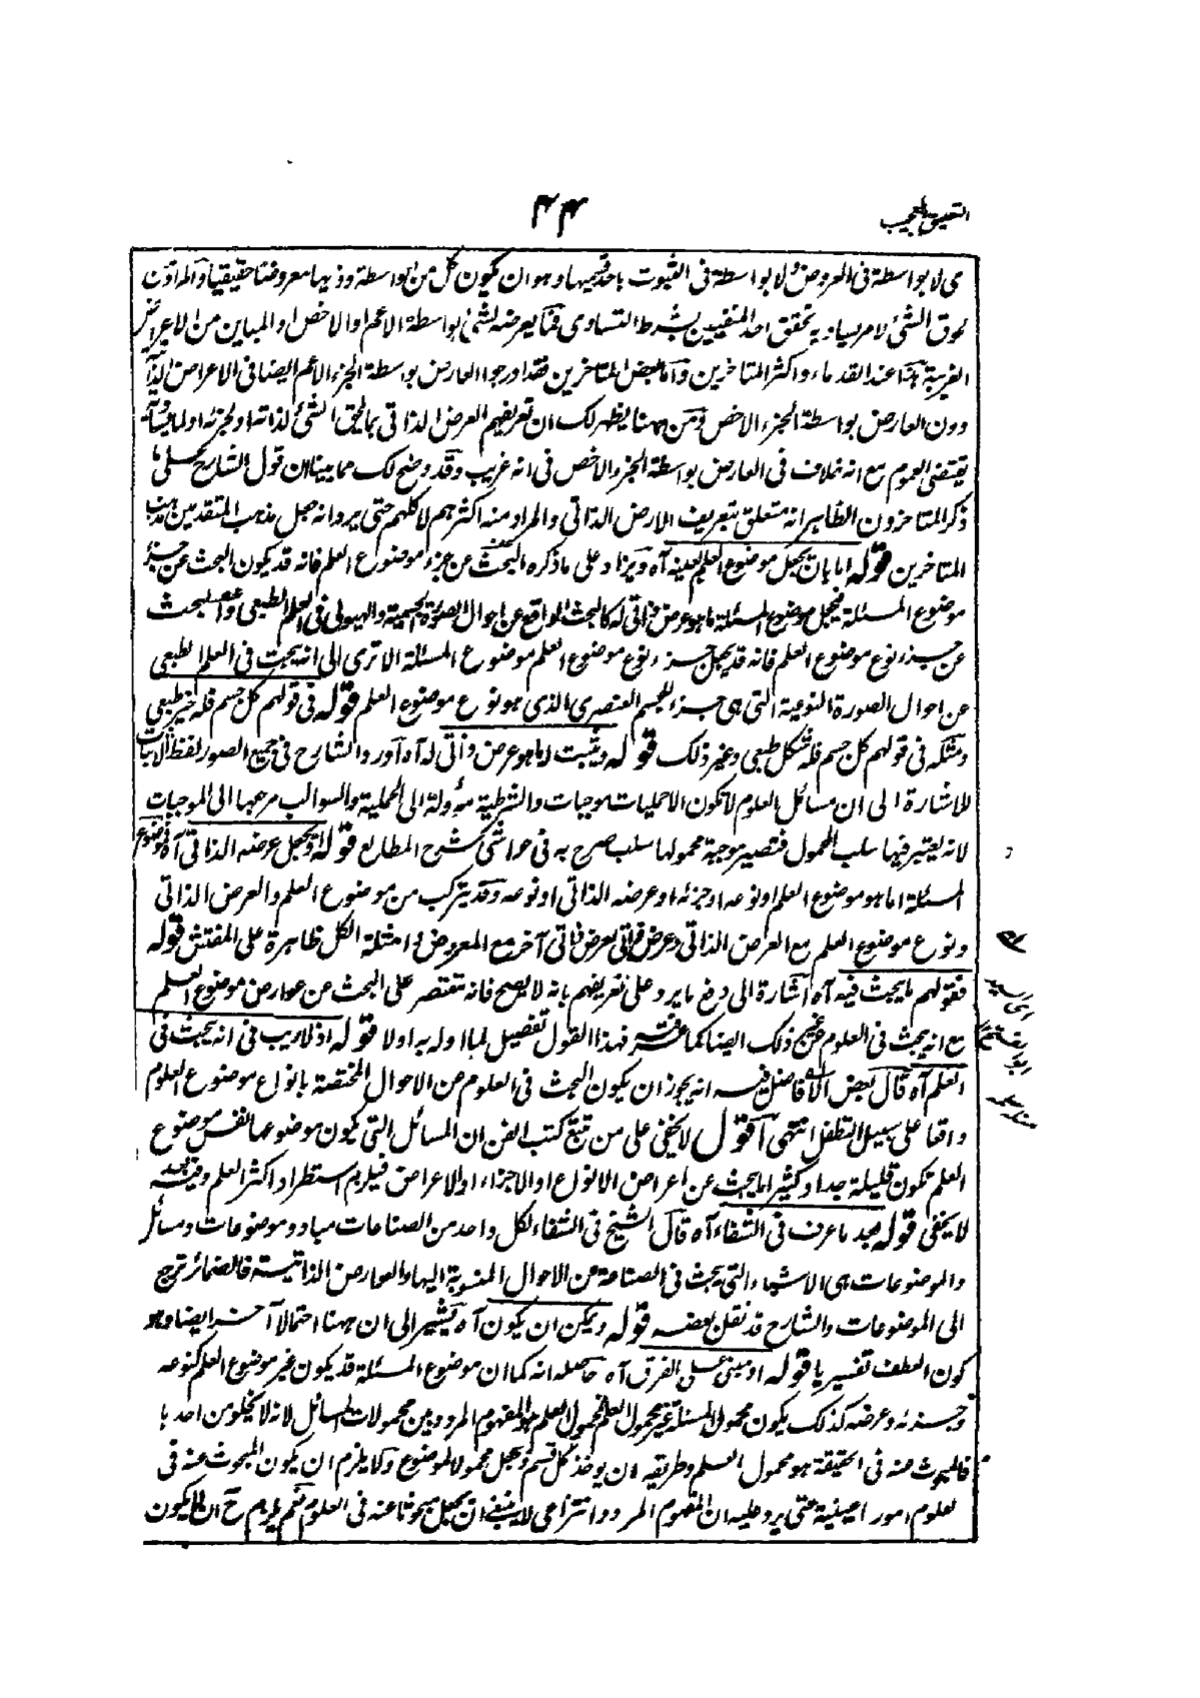 التعليق العجيب
۴۴
ى لا بواسطة فى العروض ولا بواسطة فى الثبوت باحد قسميها وهو ان يكون كل من الواسطة وذيها معروضا حقيقيا والمراد من
لحوق الشئ لامر يساويه تحقق احد المنفيين بشرط التساوى فما يعرضه لشئ بواسطة الاعم او الاخص او المباين من الاعراض
الغريبة هذا عند القدماء واكثر المتاخرين واما بعض المتاخرين فقد ادرجوا العارض بواسطة الجزء الاعم ايضا فى الاعراض
دون العارض بواسطة الجزء الاخص ومن ههنا يظهر لك ان تعريفهم العرض الذاتى بما يلحق الشئ لذاته او لجزئه او لما يساويه
يقتضى العموم مع انه لا خلاف فى العارض بواسطة الجزء الاخص فى انه غريب وقد وضح لك مما بينا ان قول الشارح على ما
ذكر المتاخرون الظاهر انه متعلق بتعريف الاعراض الذاتى والمراد منه اكثرهم لا كلهم حتى يرد انه جعل مذهب المتقدمين مذهب
المتاخرين قوله اما بان يجعل موضوع العلم بعينه آه ويزاد على ما ذكره البحث عن جزء موضوع العلم فانه قد يكون البحث عن جزء
موضوع المسئلة فيجعل موضوع المسئلة ما هو عرض ذاتى له كالبحث الواقع عن احوال الصورة الجسمية والهيولى فى العلم الطبعى والبحث
عن جزء نوع موضوع العلم فانه قد يجعل جزء نوع موضوع العلم موضوع المسئلة الا ترى الى انه يبحث فى العلم الطبعى
عن احوال الصورة النوعية التى هى جزء للجسم العنصرى الذى هو نوع موضوع العلم قوله فى قولهم كل جسم فله حيز طبعى
ومثله فى قولهم كل جسم فله شكل طبعى وغير ذلك قوله ويثبت له ما هو عرض ذاتى له آه اورد الشارح فى جميع الصور لفظ الاثبات
للاشارة الى ان مسائل العلوم لا تكون الا حمليات موجبات والشرطية مأولة الى الحملية والسوالب مرجعها الى الموجبات
لانه يعتبر فيها سلب المحمول فتصير موجبة محمولها سلب صرح به فى حواشى شرح المطالع قوله ويجعل عرضه الذاتى آه موضوع
المسئلة اما هو موضوع العلم او نوعه او جزئه او عرضه الذاتى او نوعه وقد يتركب من موضوع العلم والعرض الذاتى
ونوع موضوع العلم مع العرض الذاتى وعرض ذاتى بعرض ذاتى آخر مع المعروض وامثلة الكل ظاهرة على المفتش قوله
فقولهم ما يبحث فيه آه اشارة الى دفع ما يرد على تعريفهم بانه لا يصح فانه مقتصر على البحث عن عوارض موضوع العلم
مع انه يبحث فى العلوم عن غير ذلك ايضا كما عرفته فهذا القول تفصيل لما اوله به اولا قوله اذ لا ريب فى انه يبحث فى
العلم آه قال بعض الافاضل فيه انه يجوز ان يكون البحث فى العلوم عن الاحوال المختصة بانواع موضوع العلوم
واقعا على سبيل التطفل انتهى اقول لا يخفى على من تتبع كتب الفن ان المسائل التى يكون موضوعها نفس موضوع
العلم تكون قليلة جدا وكثيرا ما يبحث عن اعراض الانواع او الاجزاء او الاعراض فيلزم استطراد اكثر العلم وفيه بعد
لا يخفى قوله بعد ما عرف فى الشفاء آه قال الشيخ فى الشفاء لكل واحد من الصناعات مباد وموضوعات ومسائل
والموضوعات هى الاشياء التى يبحث فى الصناعة عن الاحوال المنسوبة اليها والعوارض الذاتية فالضمائر ترجع
الى الموضوعات والشارح قد نقل بعضه قوله ويمكن ان يكون آه يشير الى ان ههنا احتمالا آخر ايضا وهو
كون العطف تفسيريا قوله او مبنى على الفرق آه حاصله انه كما ان موضوع المسئلة قد يكون غير موضوع العلم كنوعه
وجزئه وعرضه كذلك يكون محمول المسئلة غير محمول العلم فمحمول العلم هو المفهوم المردد بين محمولات المسائل لانه لا يخلو من احدها
فالمبحوث عنه فى الحقيقة هو محمول العلم وطريقه ان يوخذ كل قسم ويجعل محمولا للموضوع ولا يلزم ان يكون المبحوث عنه فى
العلوم امورا عينية حتى يرد عليه ان المفهوم المردد انتزاعى لا ينبغى ان يجعل مبحوثا عنه فى العلوم نعم يلزم ح ان لا يكون